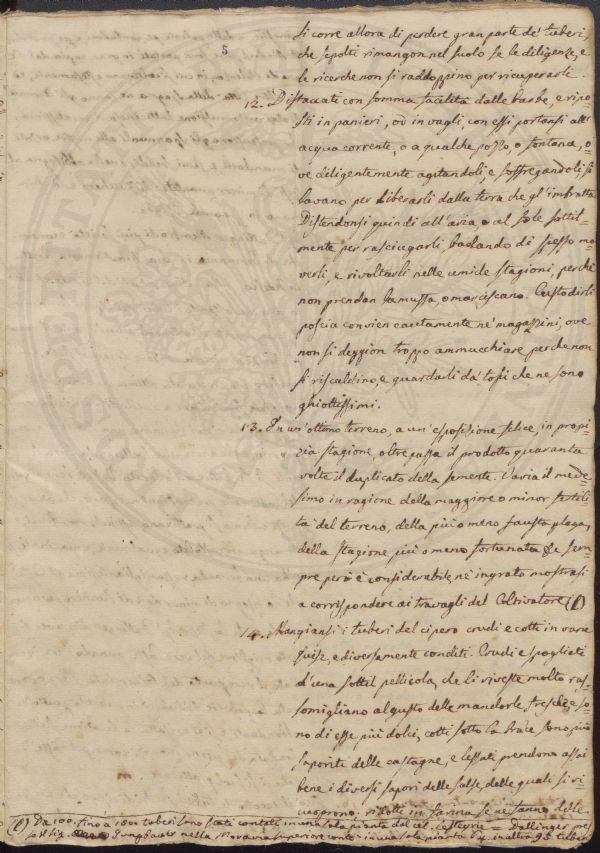 5
si corre allora di perdere gran parte de' tuberi,
che sepolti rimangon nel suolo se le diligenze, e
le ricerche non si raddoppino per ricuperarli.
12. Distaccati con somma facilità dalle barbe, e ripo=
sti in panieri, od in vagli, con essi portansi all'
acqua corrente, o a qualche pozzo, o fontana, o=
ve diligentemente agitandoli, e soffregandoli si
lavano per liberarli dalla terra che gl'imbratta
Distendonsi quindi all'aria, o al sole sottil=
mente per rasciugarli, badando di spesso mo=
verli, e rivoltarli nelle umide stagioni, perchè
non prendan la muffa, o marciscano. Custodirli
poscia convien cautamente ne' magazzini, ove
non si deggion troppo ammucchiare perche non
si riscaldino, e guardarli da' topi che ne sono
ghiottissimi.
13. In un'ottimo terreno, a un'esposizione felice, in propi=
zia stagione, oltrepassa il prodotto quaranta
volte il duplicato della semente. Varia il mede=
simo in ragione della maggiore o minor fertili=
tà del terreno, della più o meno fausta plaga,
della stagione più o meno fortunata e sem=
pre però è considerabile, nè ingrato mostrasi
a corrispondere ai travagli del Coltivatore (1)
14. Mangiansi i tuberi del cipero crudi e cotti in varie
guise, e diversamente conditi. Crudi e spogliati
d'una sottil pellicola, che li riveste molto ras=
somigliano al gusto delle mandorle fresche e so=
no di esse più dolci, cotti sotto la brace sono più
saporiti delle castagne, e lessati prendono assai
bene i diversi sapori delle salse, delle quali si ri=
cuoprono. ridotti in farina se ne fanno delle
(1) Da 100. fino a 1500 tuberi sono stati contati in una sola pianta dal cel. Lasteyrie = Dallinger
Jungbauer nella Moravia superiore contò in una sola pianta in altra 95 tuberi